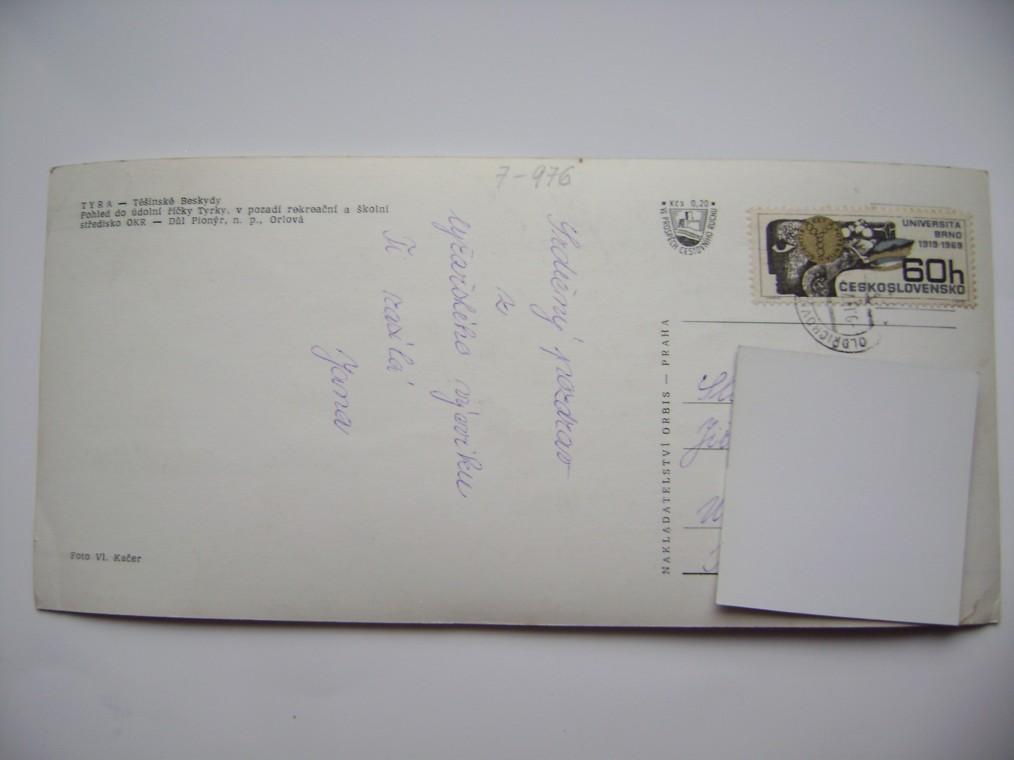 7-976
TYRA — Těšínské Beskydy
Pohled do údolní říčky Tyrky, v pozadí rekreační a školní
středisko OKR — Důl Pionýr, n. p., Orlová
Srdečný pozdrav
z
lyžařského výcviku
Ti zasílá
Jana
Foto Vl. Kačer
NAKLADATELSTVÍ ORBIS — PRAHA
Kčs 0,20
VE PROSPĚCH CESTOVNÍHO RUCHU
UNIVERSITA
BRNO
1919-1969
60h
ČESKOSLOVENSKO